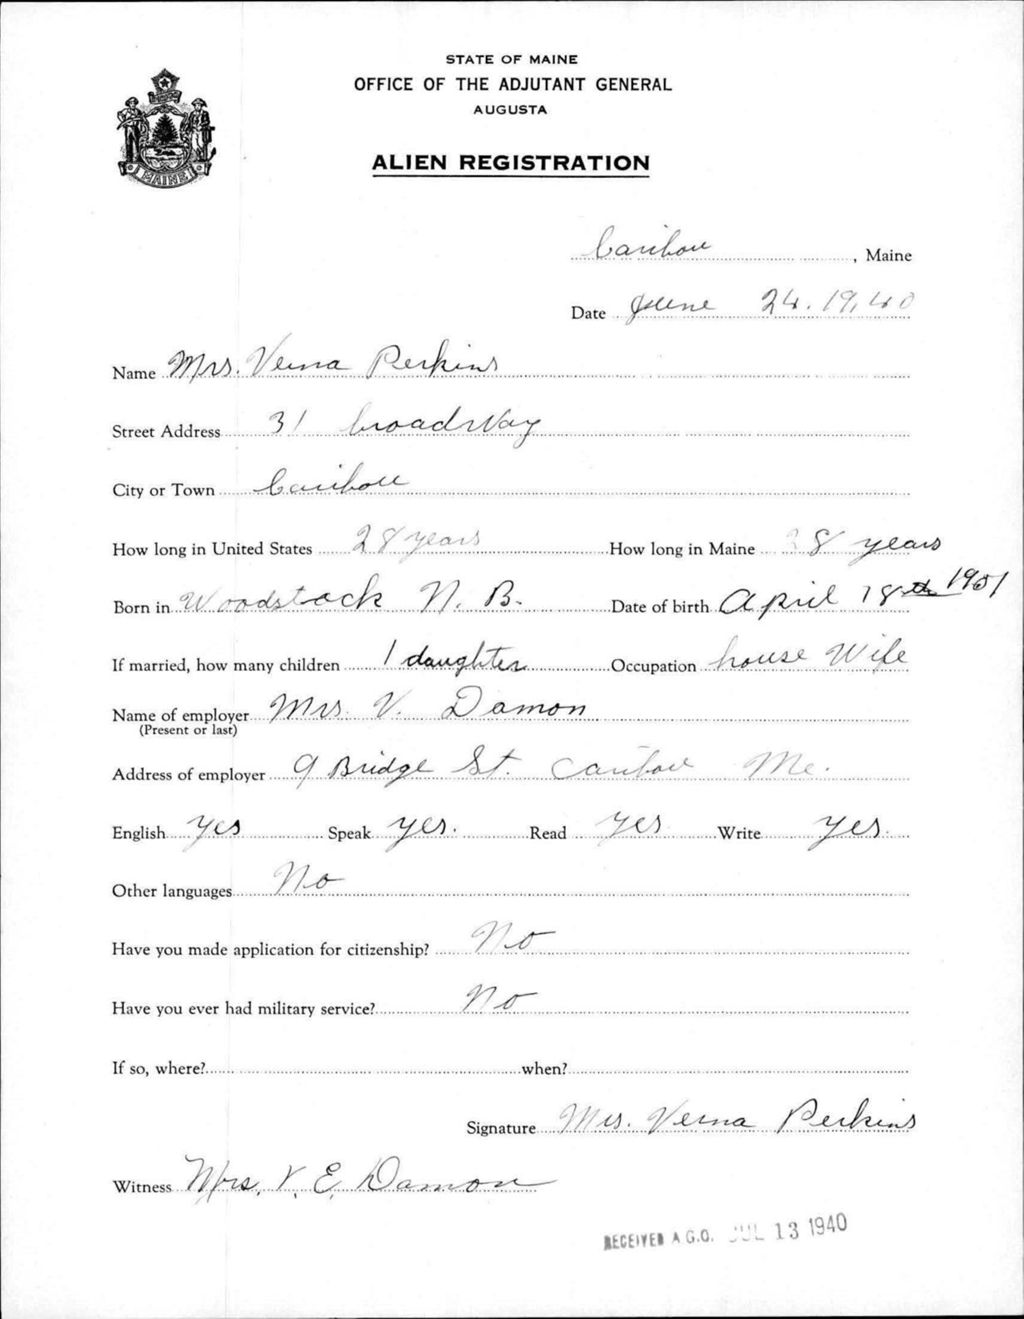 STATE OF MAINE
OFFICE OF THE ADJUTANT GENERAL
AUGUSTA
ALIEN REGISTRATION
MAINE
Caribou, Maine
Date June 24. 19,40
Name Mrs. Verna Perkins
Street Address 31 broadWay
City or Town Caribou
How long in United States 28 years How long in Maine 28 years
Born in Woodstock N. B. Date of birth April 18th 1901
If married, how many children 1 daughter Occupation house Wife
Name of employer Mrs. V. Damon
(Present or last)
Address of employer 9 Bridge St. Caribou Me.
English Yes Speak yes. Read Yes Write Yes.
Other languages No
Have you made application for citizenship? No
Have you ever had military service? No
If so, where? when?
Signature Mrs. Verna Perkins
Witness Mrs. V. E. Damon
RECEIVED A.G.O. JUL 13 1940